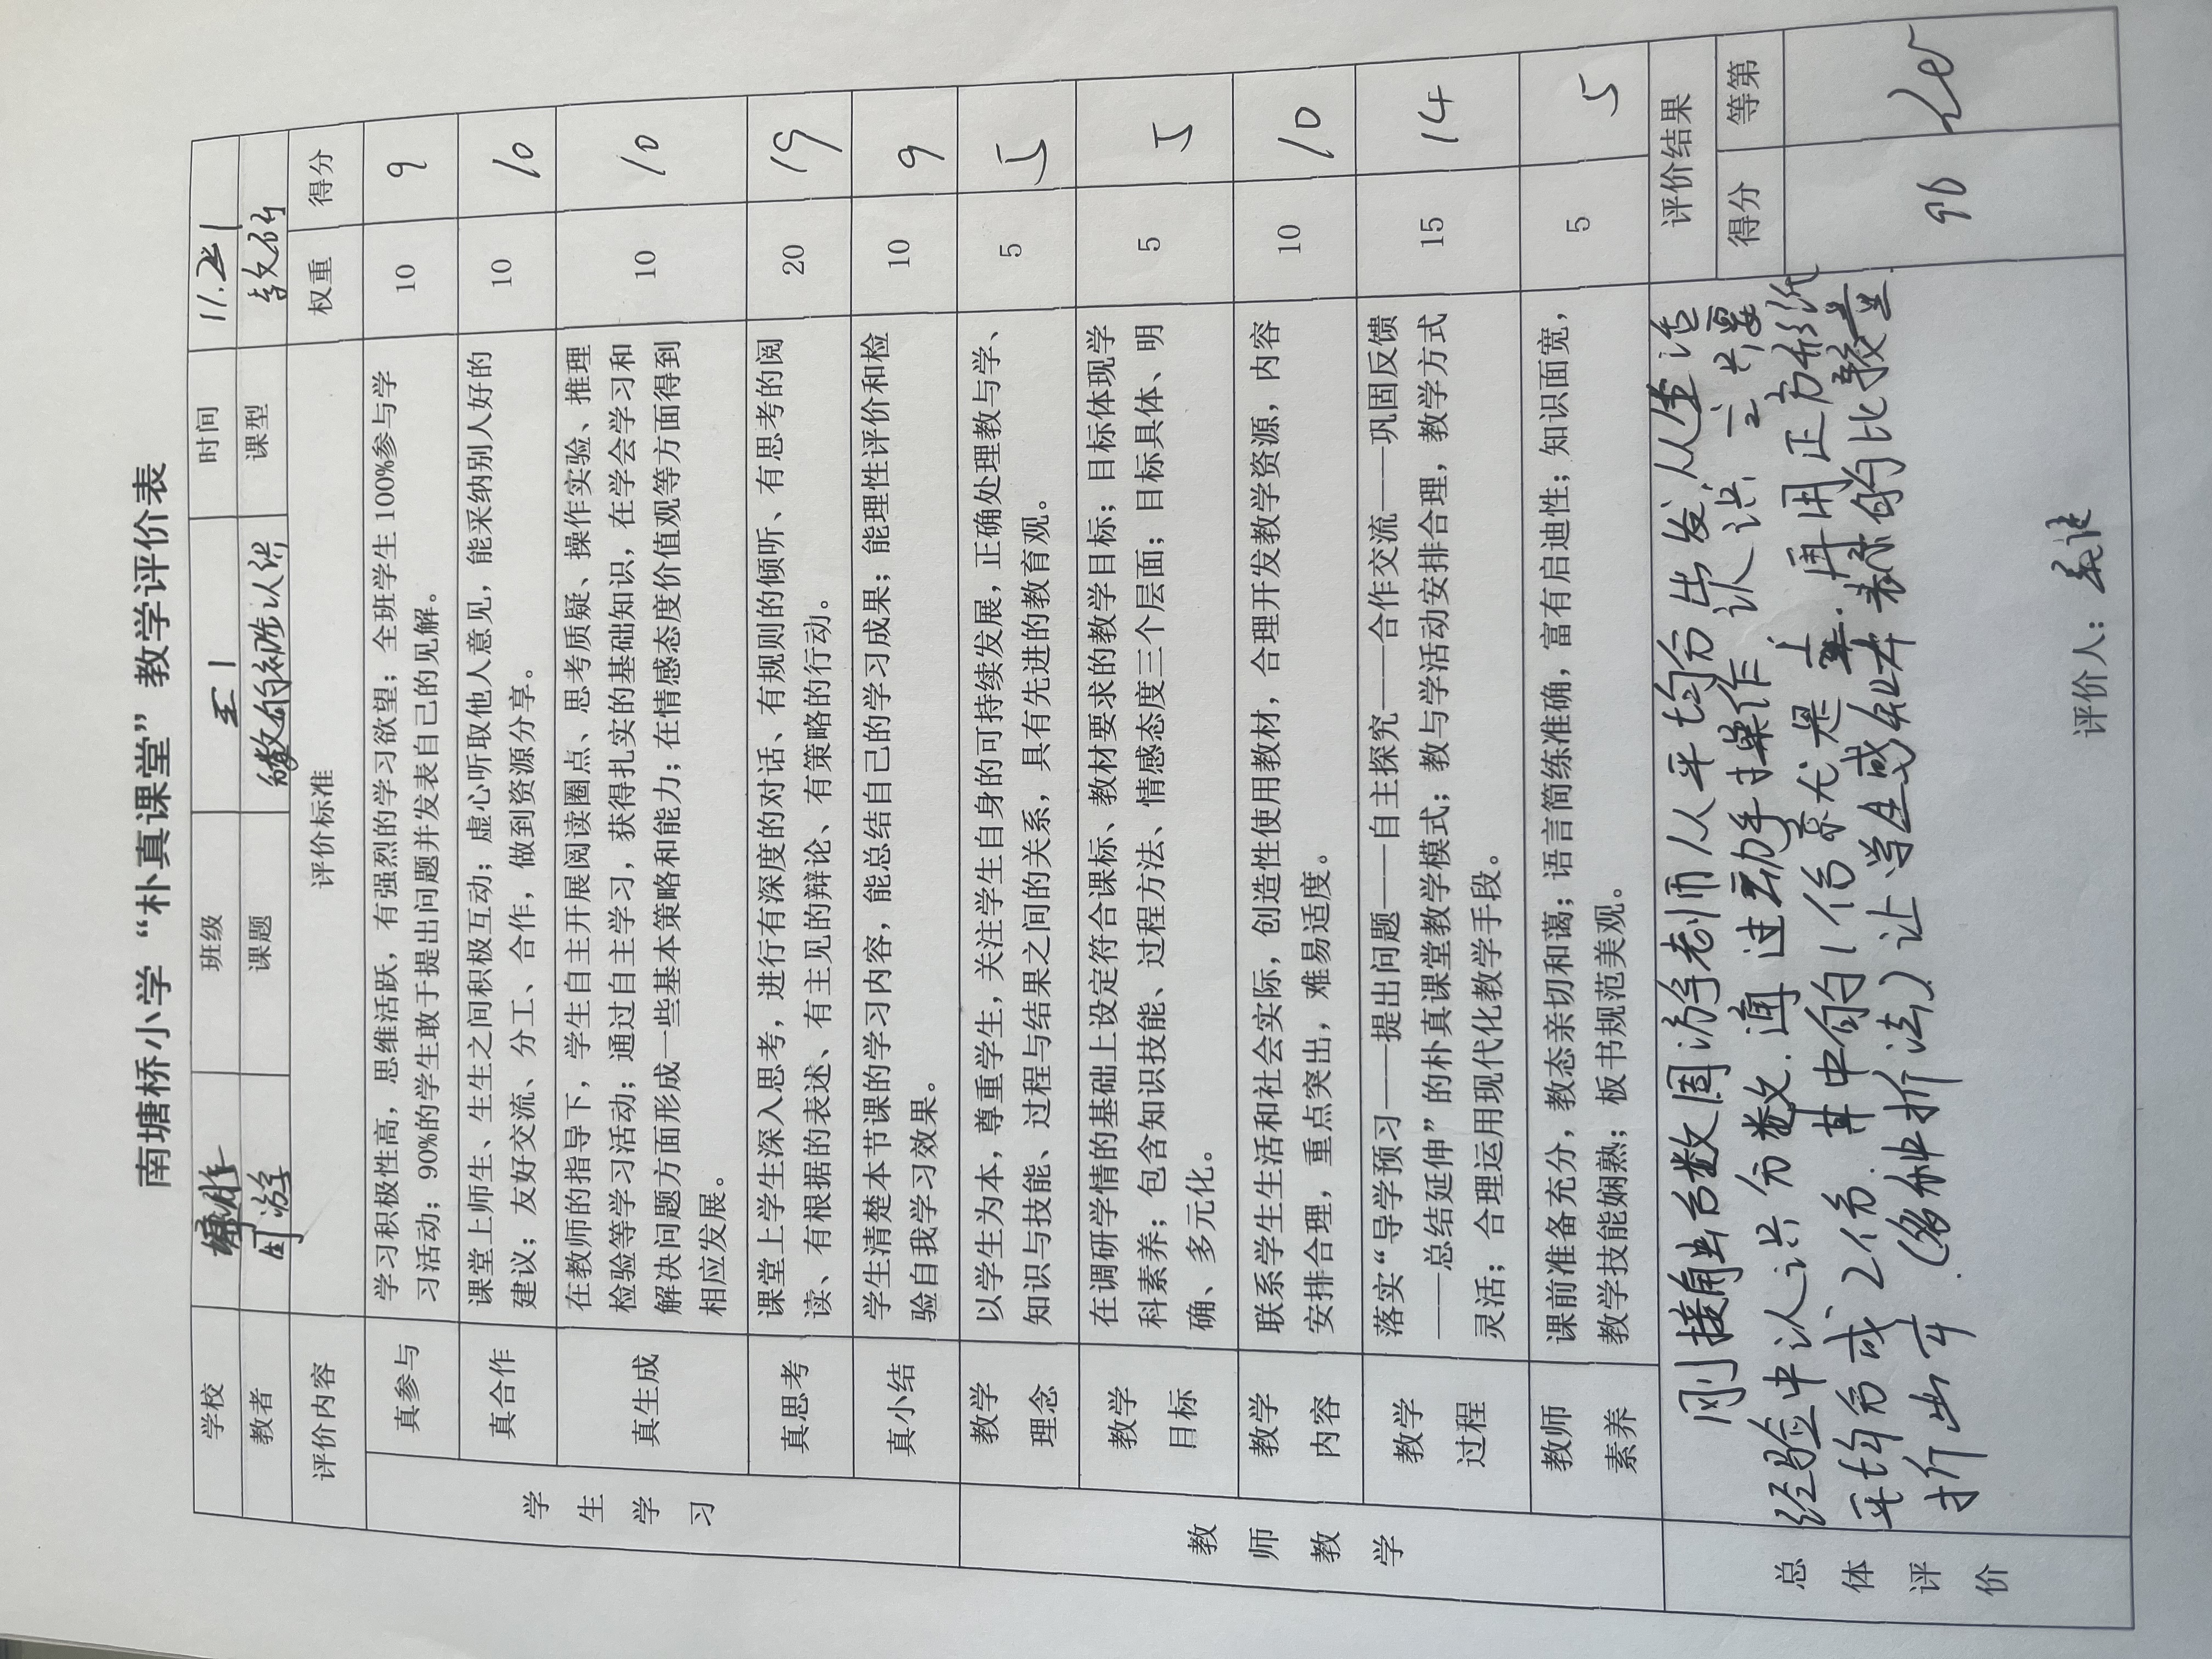 南塘桥小学“朴真课堂”教学评价表
学校 班级 三1 时间 11.21
教者 周游 课题 分数的初步认识 课型
评价内容 评价标准 权重 得分
学生学习
真参与 学习积极性高，思维活跃，有强烈的学习欲望；全班学生100%参与学 10 9
习活动；90%的学生敢于提出问题并发表自己的见解。
真合作 课堂上师生、生生之间积极互动；虚心听取他人意见，能采纳别人好的 10 10
建议；友好交流、分工、合作，做到资源分享。
真生成 在教师的指导下，学生自主开展阅读圈点、思考质疑、操作实验、推理 10 10
检验等学习活动；通过自主学习，获得扎实的基础知识，在学会学习和
解决问题方面形成一些基本策略和能力；在情感态度价值观等方面得到
相应发展。
真思考 课堂上学生深入思考，进行有深度的对话、有规则的倾听、有思考的阅 20 19
读、有根据的表述、有主见的辩论、有策略的行动。
真小结 学生清楚本节课的学习内容，能总结自己的学习成果；能理性评价和检 10 9
验自我学习效果。
教师教学
教学 以学生为本，尊重学生，关注学生自身的可持续发展，正确处理教与学、 5 5
理念 知识与技能、过程与结果之间的关系，具有先进的教育观。
教学 在调研学情的基础上设定符合课标、教材要求的教学目标；目标体现学 5 5
目标 科素养；包含知识技能、过程方法、情感态度三个层面；目标具体、明
确、多元化。
教学 联系学生生活和社会实际，创造性使用教材，合理开发教学资源，内容 10 10
内容 安排合理，重点突出，难易适度。
教学 落实“导学预习——提出问题——自主探究——合作交流——巩固反馈 15 14
过程 ——总结延伸”的朴真课堂教学模式；教与学活动安排合理，教学方式
灵活；合理运用现代化教学手段。
教师 课前准备充分，教态亲切和蔼；语言简练准确，富有启迪性；知识面宽， 5 5
素养 教学技能娴熟；板书规范美观。
总体评价
刚接触分数周游老师从平均分出发，从生活
经验中认识分数．通过动手操作认识
平均分成2份．其中的1份就是．再用正方形纸
折出（多种折法）让学生感知的比较
评价结果
得分 等第
96
评价人：